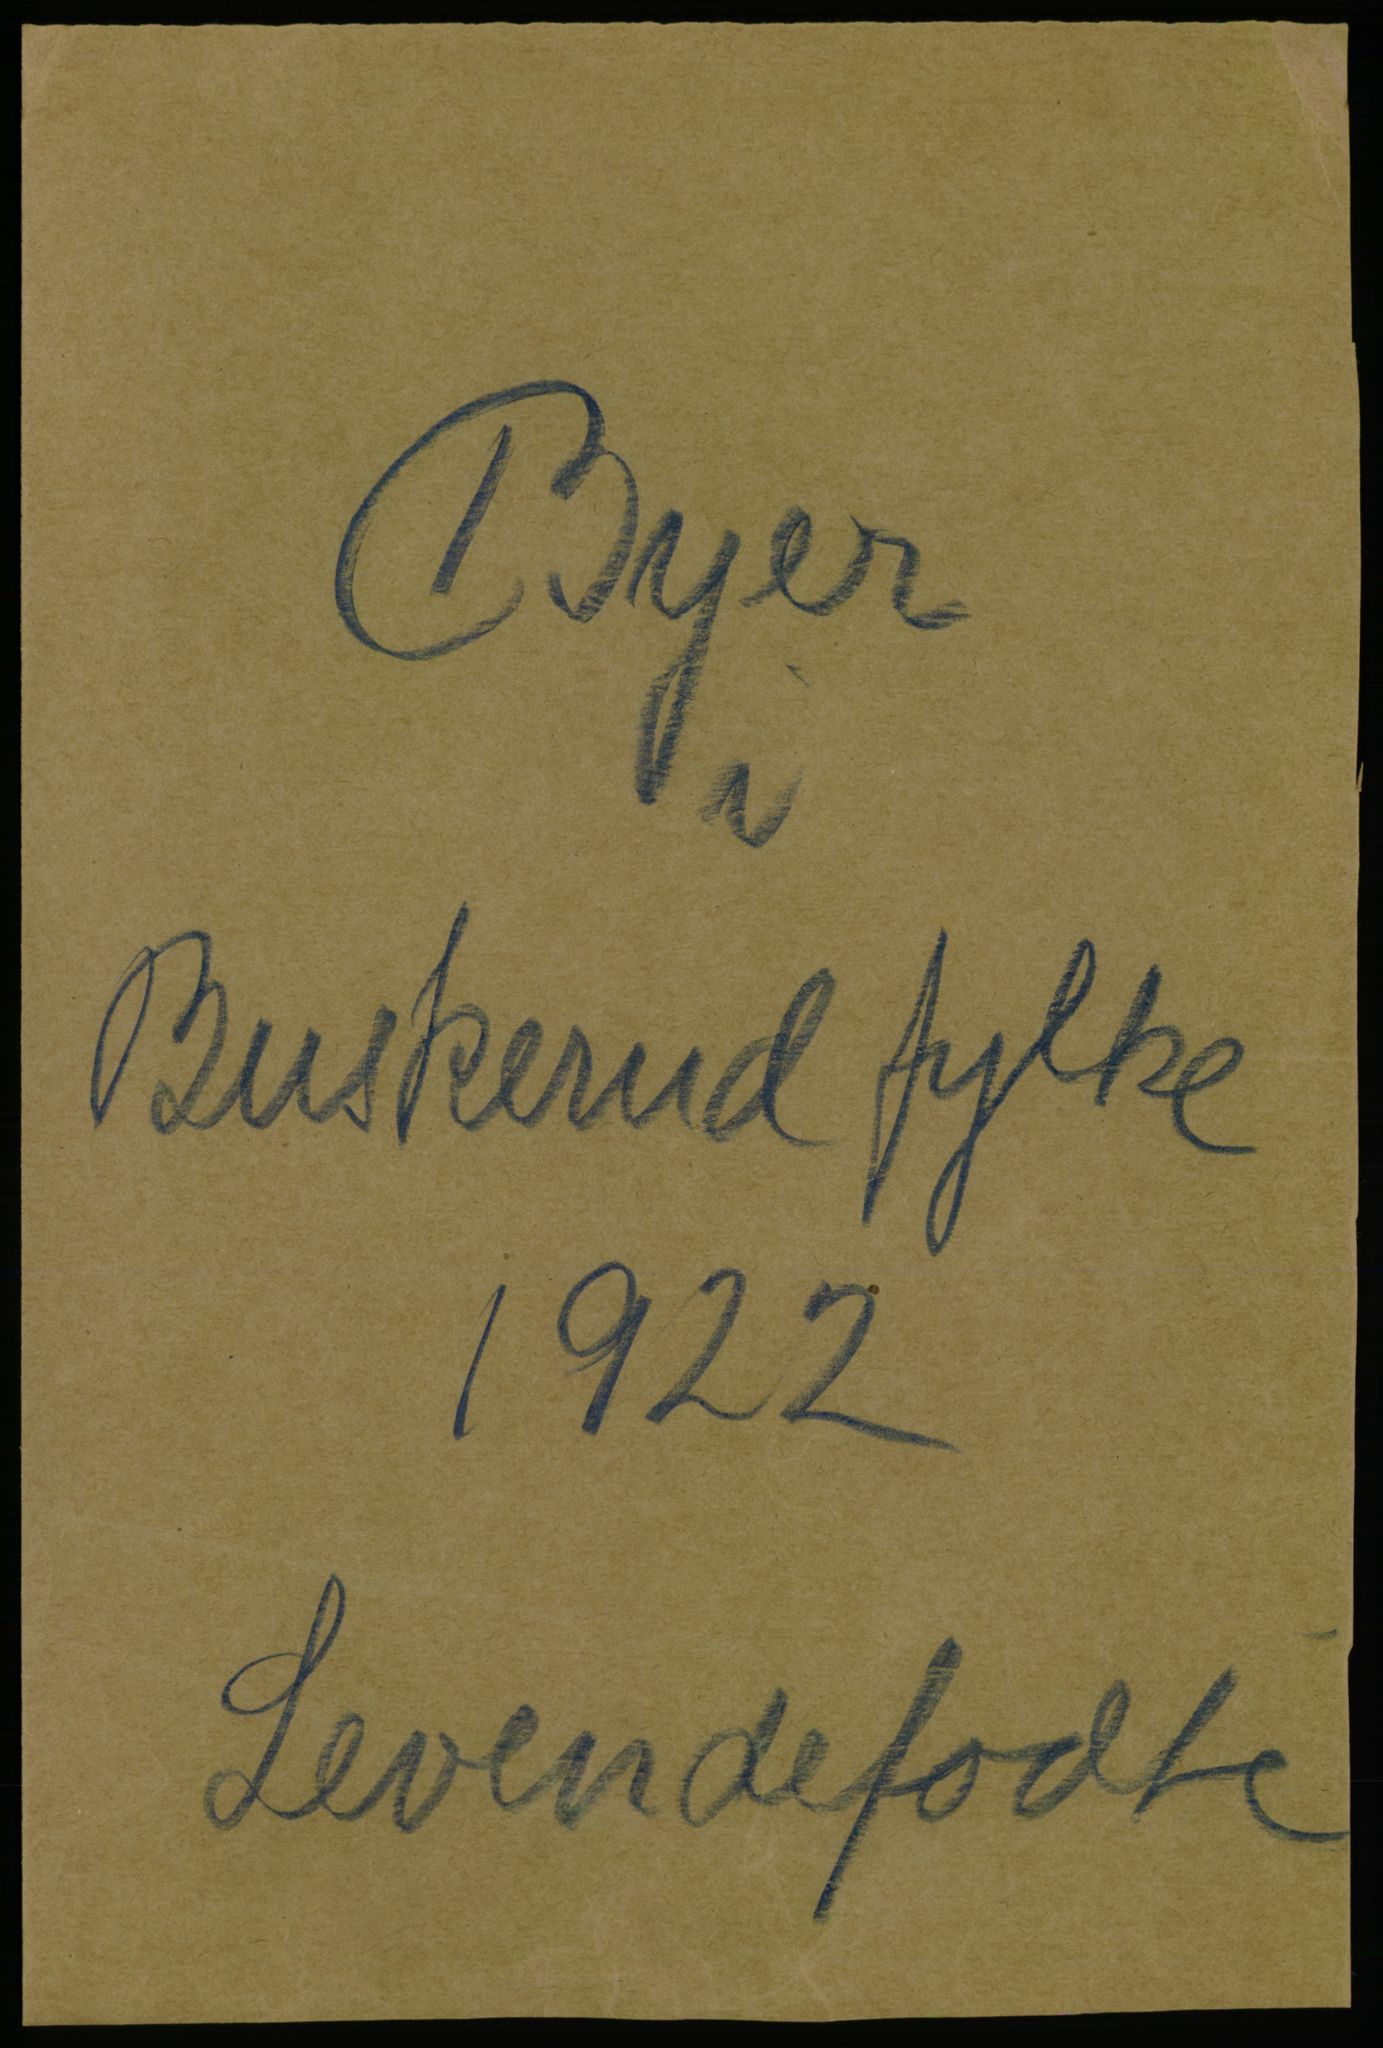 Byer
i
Buskerud fylke
1922
Levendefodte